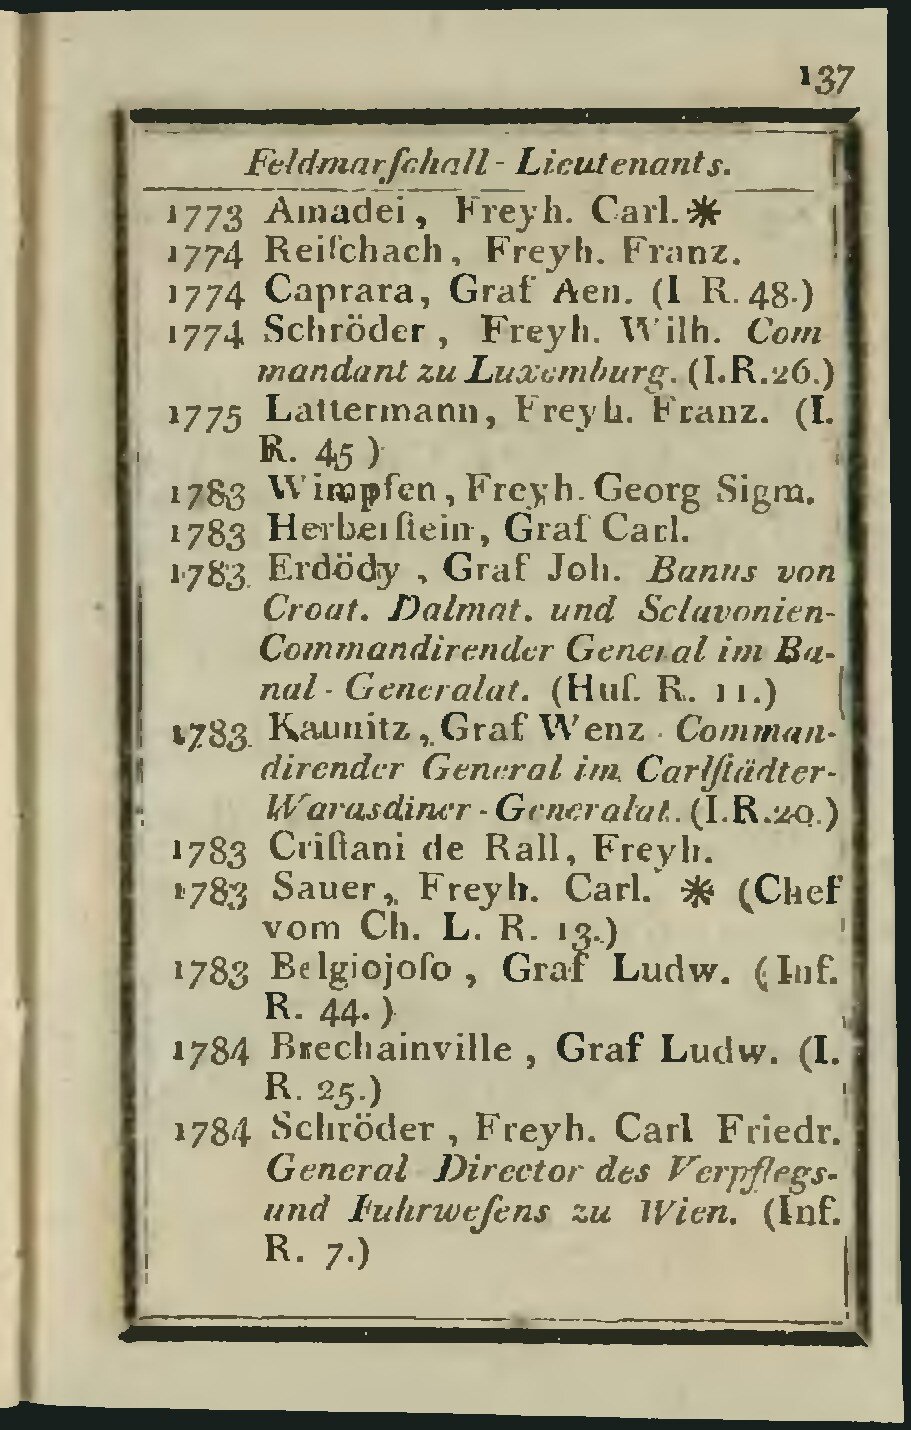 137
Feldmarſchall - Lieutenants.
1773 Amadei, Freyh. Carl. *
1774 Reiſchach, Freyh. Franz.
1774 Caprara, Graf Aen. (I R. 48.)
1774 Schröder, Freyh. Wilh. Com
mandant zu Luxemburg. (I.R.26.)
1775 Lattermann, Freyh. Franz. (I.
R. 45)
1783 Wimpfen, Freyh. Georg Sigm.
1783 Herberſtein, Graf Carl.
1783. Erdödy, Graf Joh. Banus von
Croat. Dalmat. und Sclavonien-
Commandirender General im Ba-
nal - Generalat. (Huſ. R. 11.)
1783. Kaunitz, Graf Wenz. Comman-
dirender General im Carlſtädter-
Warasdiner - Generalat. (I.R.20.)
1783 Criſtani de Rall, Freyh.
1783 Sauer, Freyh. Carl. * (Chef
vom Ch. L. R. 13.)
1783 Belgiojoſo, Graf Ludw. (Inf.
R. 44.)
1784 Brechainville, Graf Ludw. (I.
R. 25.)
1784 Schröder, Freyh. Carl Friedr.
General Director des Verpflegs-
und Fuhrweſens zu Wien. (Inf.
R. 7.)